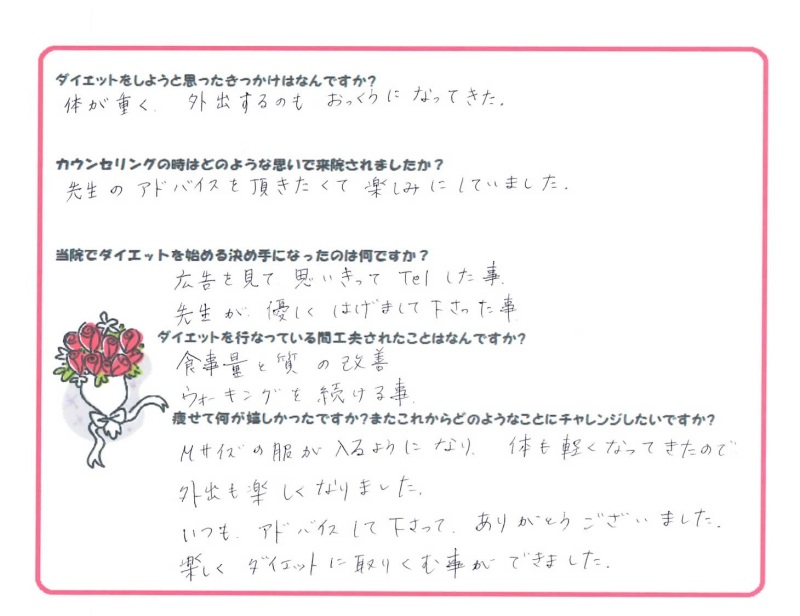 ダイエットをしようと思ったきっかけはなんですか?
体が重く、外出するのも おっくうに なってきた。
カウンセリングの時はどのような思いで来院されましたか?
先生の アドバイスを 頂きたくて 楽しみにしていました。
当院でダイエットを始める決め手になったのは何ですか?
広告を見て 思いきって Telした事。
先生が 優しく はげまして下さった事
ダイエットを行なっている間工夫されたことはなんですか?
食事量と質の改善
ウォーキングを 続ける事。
痩せて何が嬉しかったですか?またこれからどのようなことにチャレンジしたいですか?
Mサイズの服が 入るようになり、体も軽くなってきたので
外出も楽しくなりました。
いつも、アドバイスして下さって、ありがとうございました。
楽しく ダイエットに取りくむ事が できました。